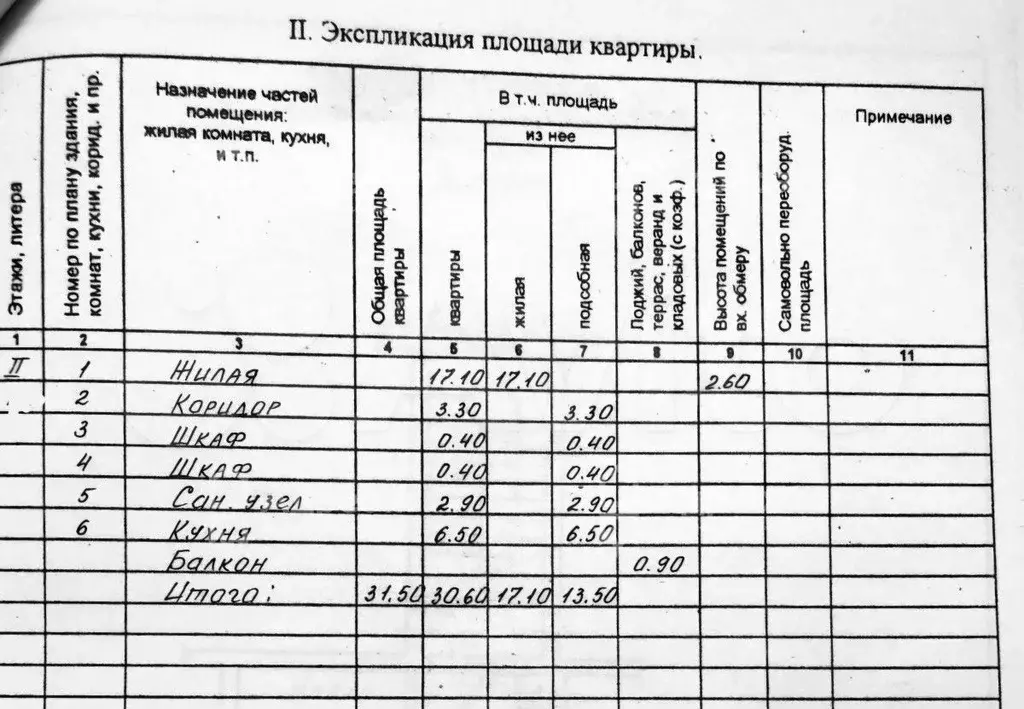 II. Экспликация площади квартиры.
Этажи, литера
Номер по плану здания, комнат, кухни, корид. и пр.
Назначение частей
помещения:
жилая комната, кухня,
и т.п.
Общая площадь квартиры
В т.ч. площадь
квартиры
из нее
жилая
подсобная
Лоджий, балконов, террас, веранд и кладовых (с коэф.)
Высота помещений по вх. обмеру
Самовольно переоборуд. площадь
Примечание
1 2 3 4 5 6 7 8 9 10 11
II 1 Жилая 17.10 17.10 2.60
2 Коридор 3.30 3.30
3 Шкаф 0.40 0.40
4 Шкаф 0.40 0.40
5 Сан. узел 2.90 2.90
6 Кухня 6.50 6.50
Балкон 0.90
Итого: 31.50 30.60 17.10 13.50